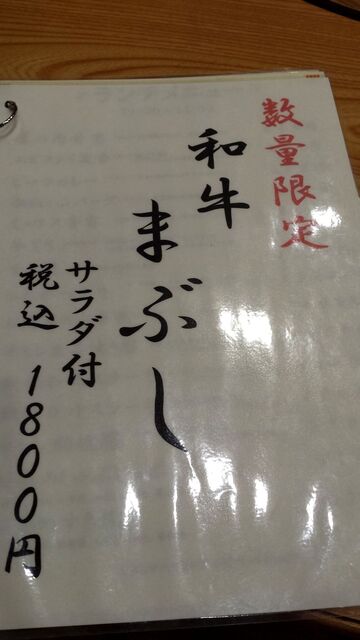 数量限定
和牛
まぶし
サラダ付
税込 1800円